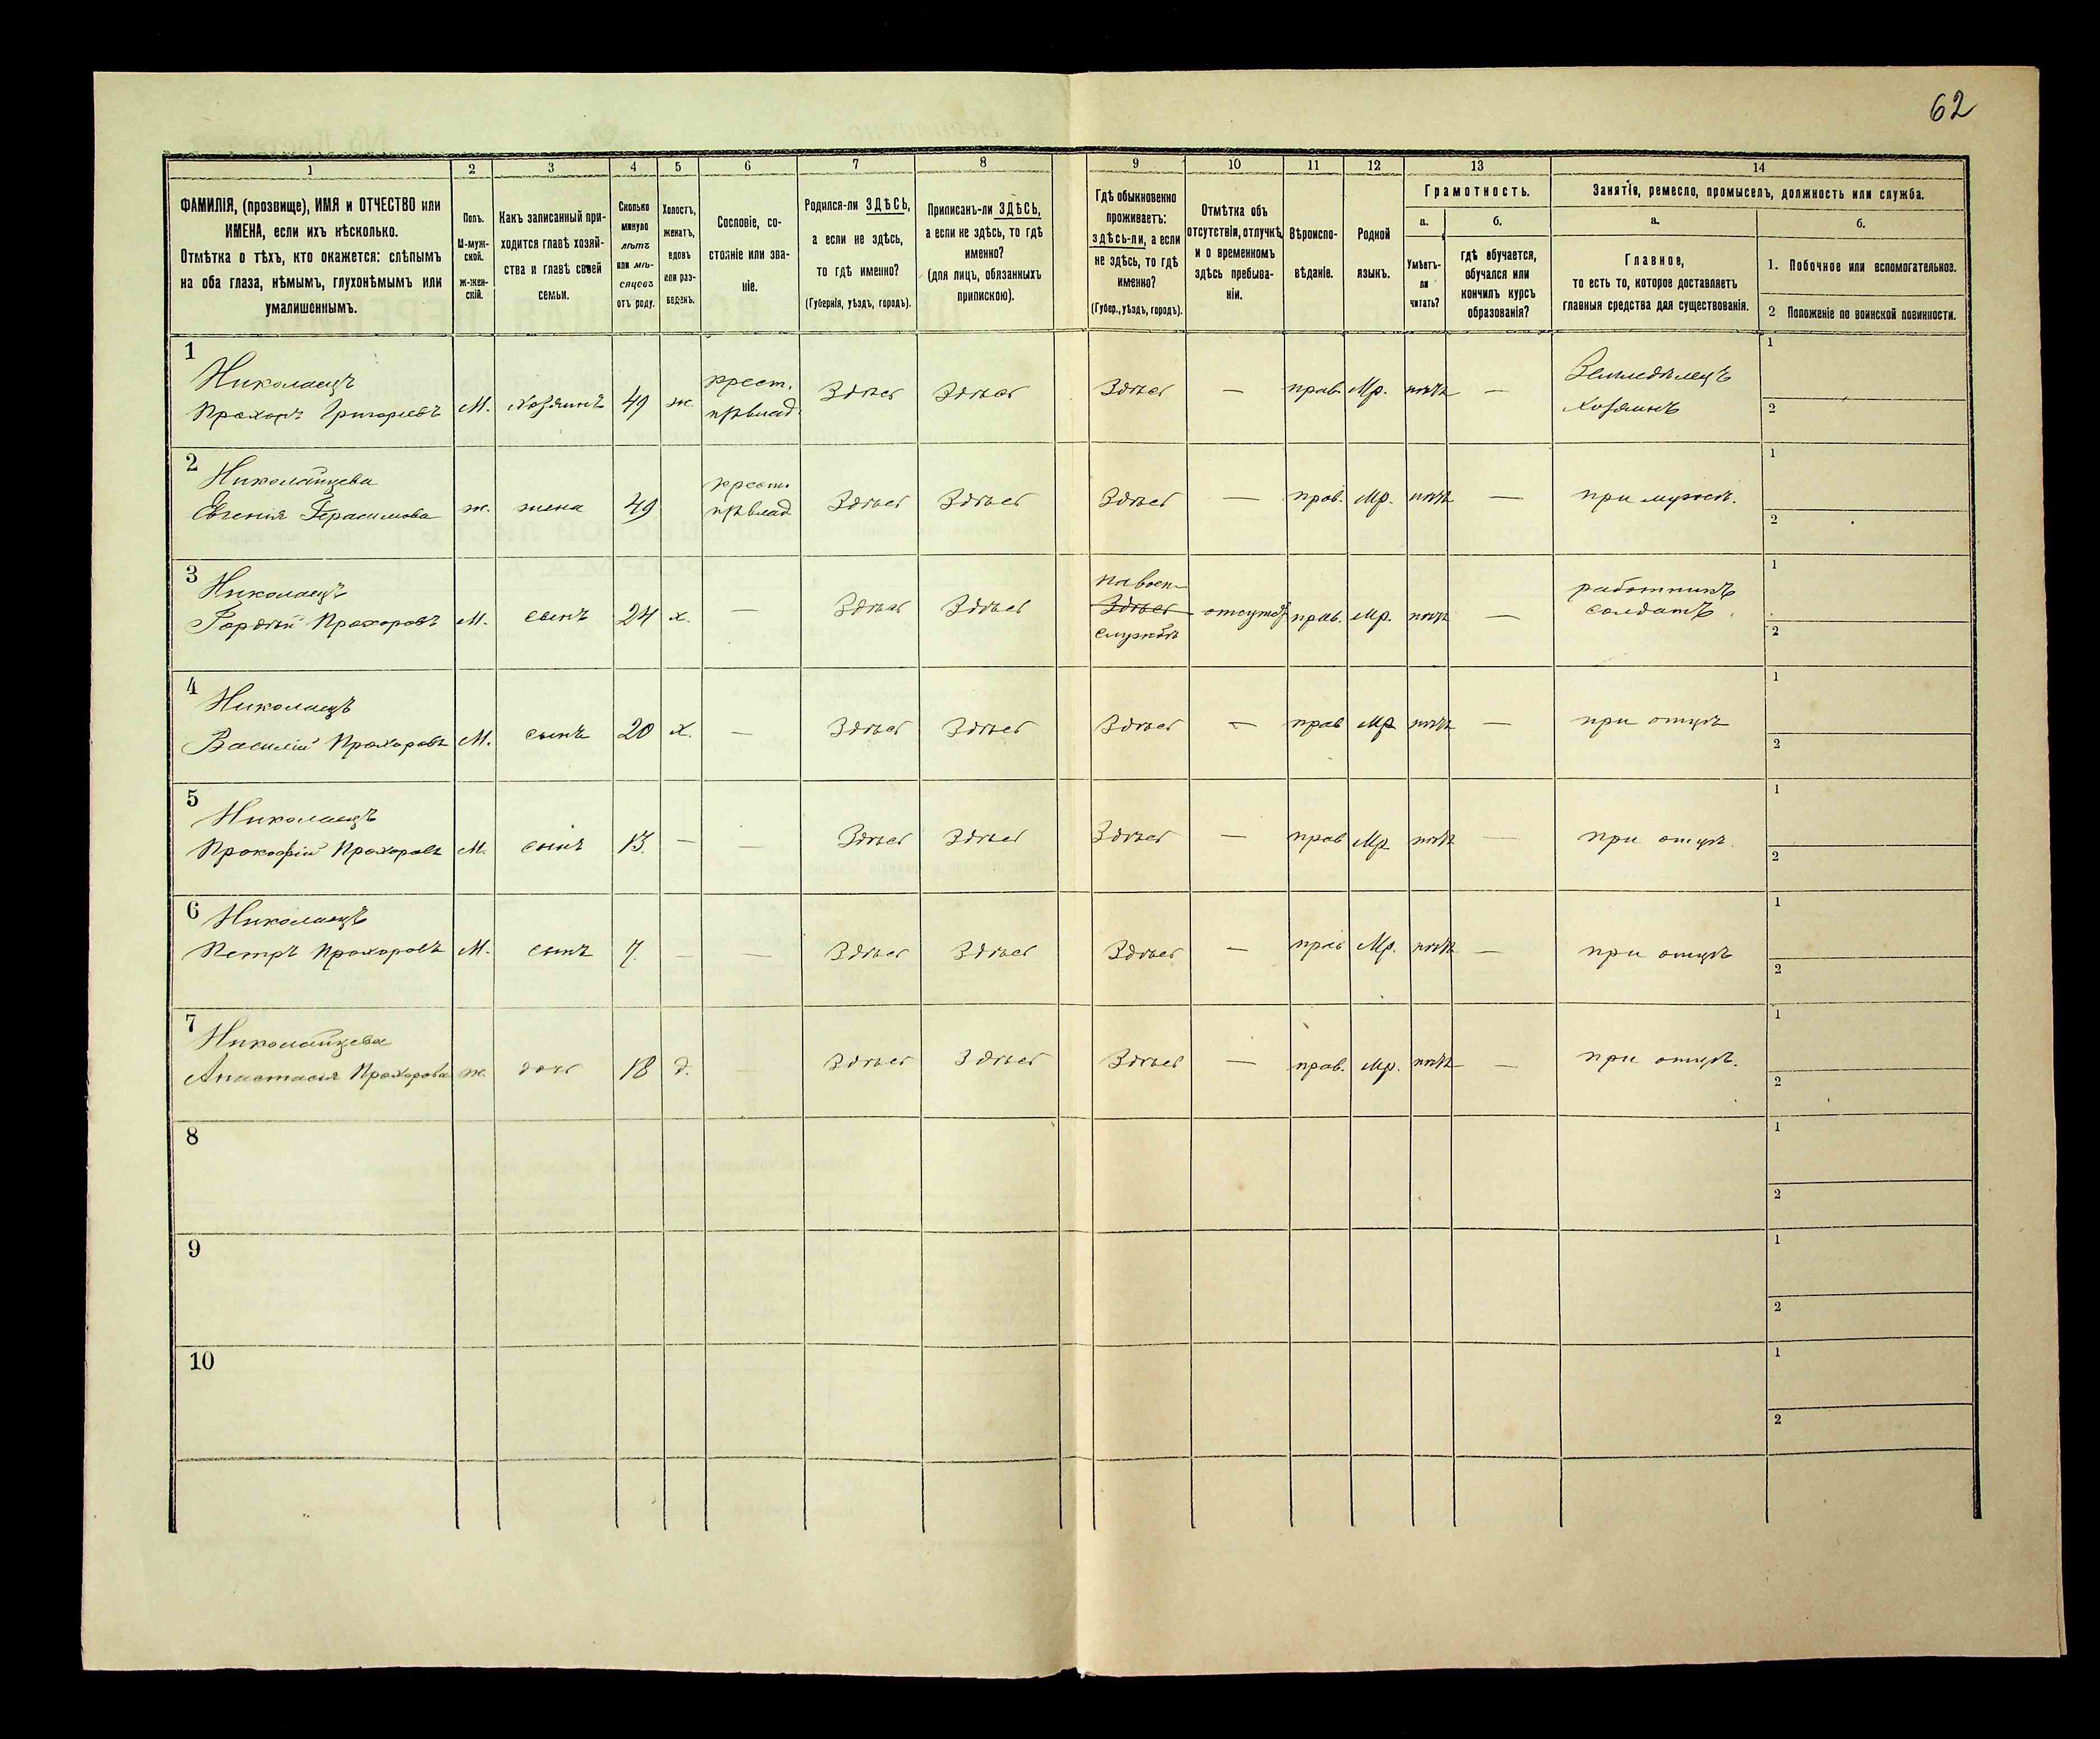 62
1 2 3 4 5 6 7 8 9 10 11 12 13 14
ФАМИЛІЯ, (прозвище), ИМЯ и ОТЧЕСТВО или
ИМЕНА, если ихъ нѣсколько.
Отмѣтка о тѣхъ, кто окажется: слѣпымъ
на оба глаза, нѣмымъ, глухонѣмымъ или
умалишеннымъ.
Полъ.
М-муж-
ской.
ж-жен-
скій.
Какъ записанный при-
ходится главѣ хозяй-
ства и главѣ своей
семьи.
Сколько
минуло
лѣтъ
или мѣ-
сяцевъ
отъ роду.
Холостъ,
женатъ,
вдовъ
или раз-
веденъ.
Сословіе, со-
стояніе или зва-
ніе.
Родился-ли ЗДѢСЬ,
а если не здѣсь,
то гдѣ именно?
(Губернія, уѣздъ, городъ).
Приписанъ-ли ЗДѢСЬ,
а если не здѣсь, то гдѣ
именно?
(для лицъ, обязанныхъ
припискою).
Гдѣ обыкновенно
проживаетъ:
здѣсь-ли, а если
не здѣсь, то гдѣ
именно?
(Губер., уѣздъ, городъ).
Отмѣтка объ
отсутствіи, отлучкѣ,
и о временномъ
здѣсь пребыва-
ніи.
Вѣроиспо-
вѣданіе.
Родной
языкъ.
Грамотность.
а.
Умѣетъ-
ли
читать?
б.
гдѣ обучается,
обучался или
кончилъ курсъ
образованія?
Занятіе, ремесло, промыселъ, должность или служба.
а.
Главное,
то есть то, которое доставляетъ
главныя средства для существованія.
б.
1. Побочное или вспомогательное.
2 Положеніе по воинской повинности.
1
Николаецъ
Прохоръ Григорьевъ М. хозяинъ 49 ж. крест. Здѣсь Здѣсь Здѣсь — прав. Мр. нѣтъ — Земледѣлецъ
хозяинъ
1
2
2
Николайцева
Евгенія Герасимова ж. жена 49 Здѣсь Здѣсь Здѣсь — прав. Мр. нѣтъ — при мужѣ.
1
2
3
Николаецъ
Гордѣй Прохоровъ М. сынъ 24 х. — Здѣсь Здѣсь на воен- Здѣсь службѣ прав. Мр. нѣтъ — работникъ
солдатъ
1
2
4
Николаецъ
Василій Прохоровъ М. сынъ 20 х. — Здѣсь Здѣсь Здѣсь — прав Мр нѣтъ — при отцѣ
1
2
5
Николаецъ
Прокофій Прохоровъ М. сынъ 13. — — Здѣсь Здѣсь Здѣсь — прав Мр нѣтъ — при отцѣ.
1
2
6
Николаецъ
Петръ Прохоровъ М. сынъ 7. — — Здѣсь Здѣсь Здѣсь — прав Мр. нѣтъ — при отцѣ
1
2
7
Николайцева
Анастасія Прохорова ж. дочь 18 д. — Здѣсь Здѣсь Здѣсь — прав. Мр. нѣтъ — при отцѣ.
1
2
8
1
2
9
1
2
10
1
2